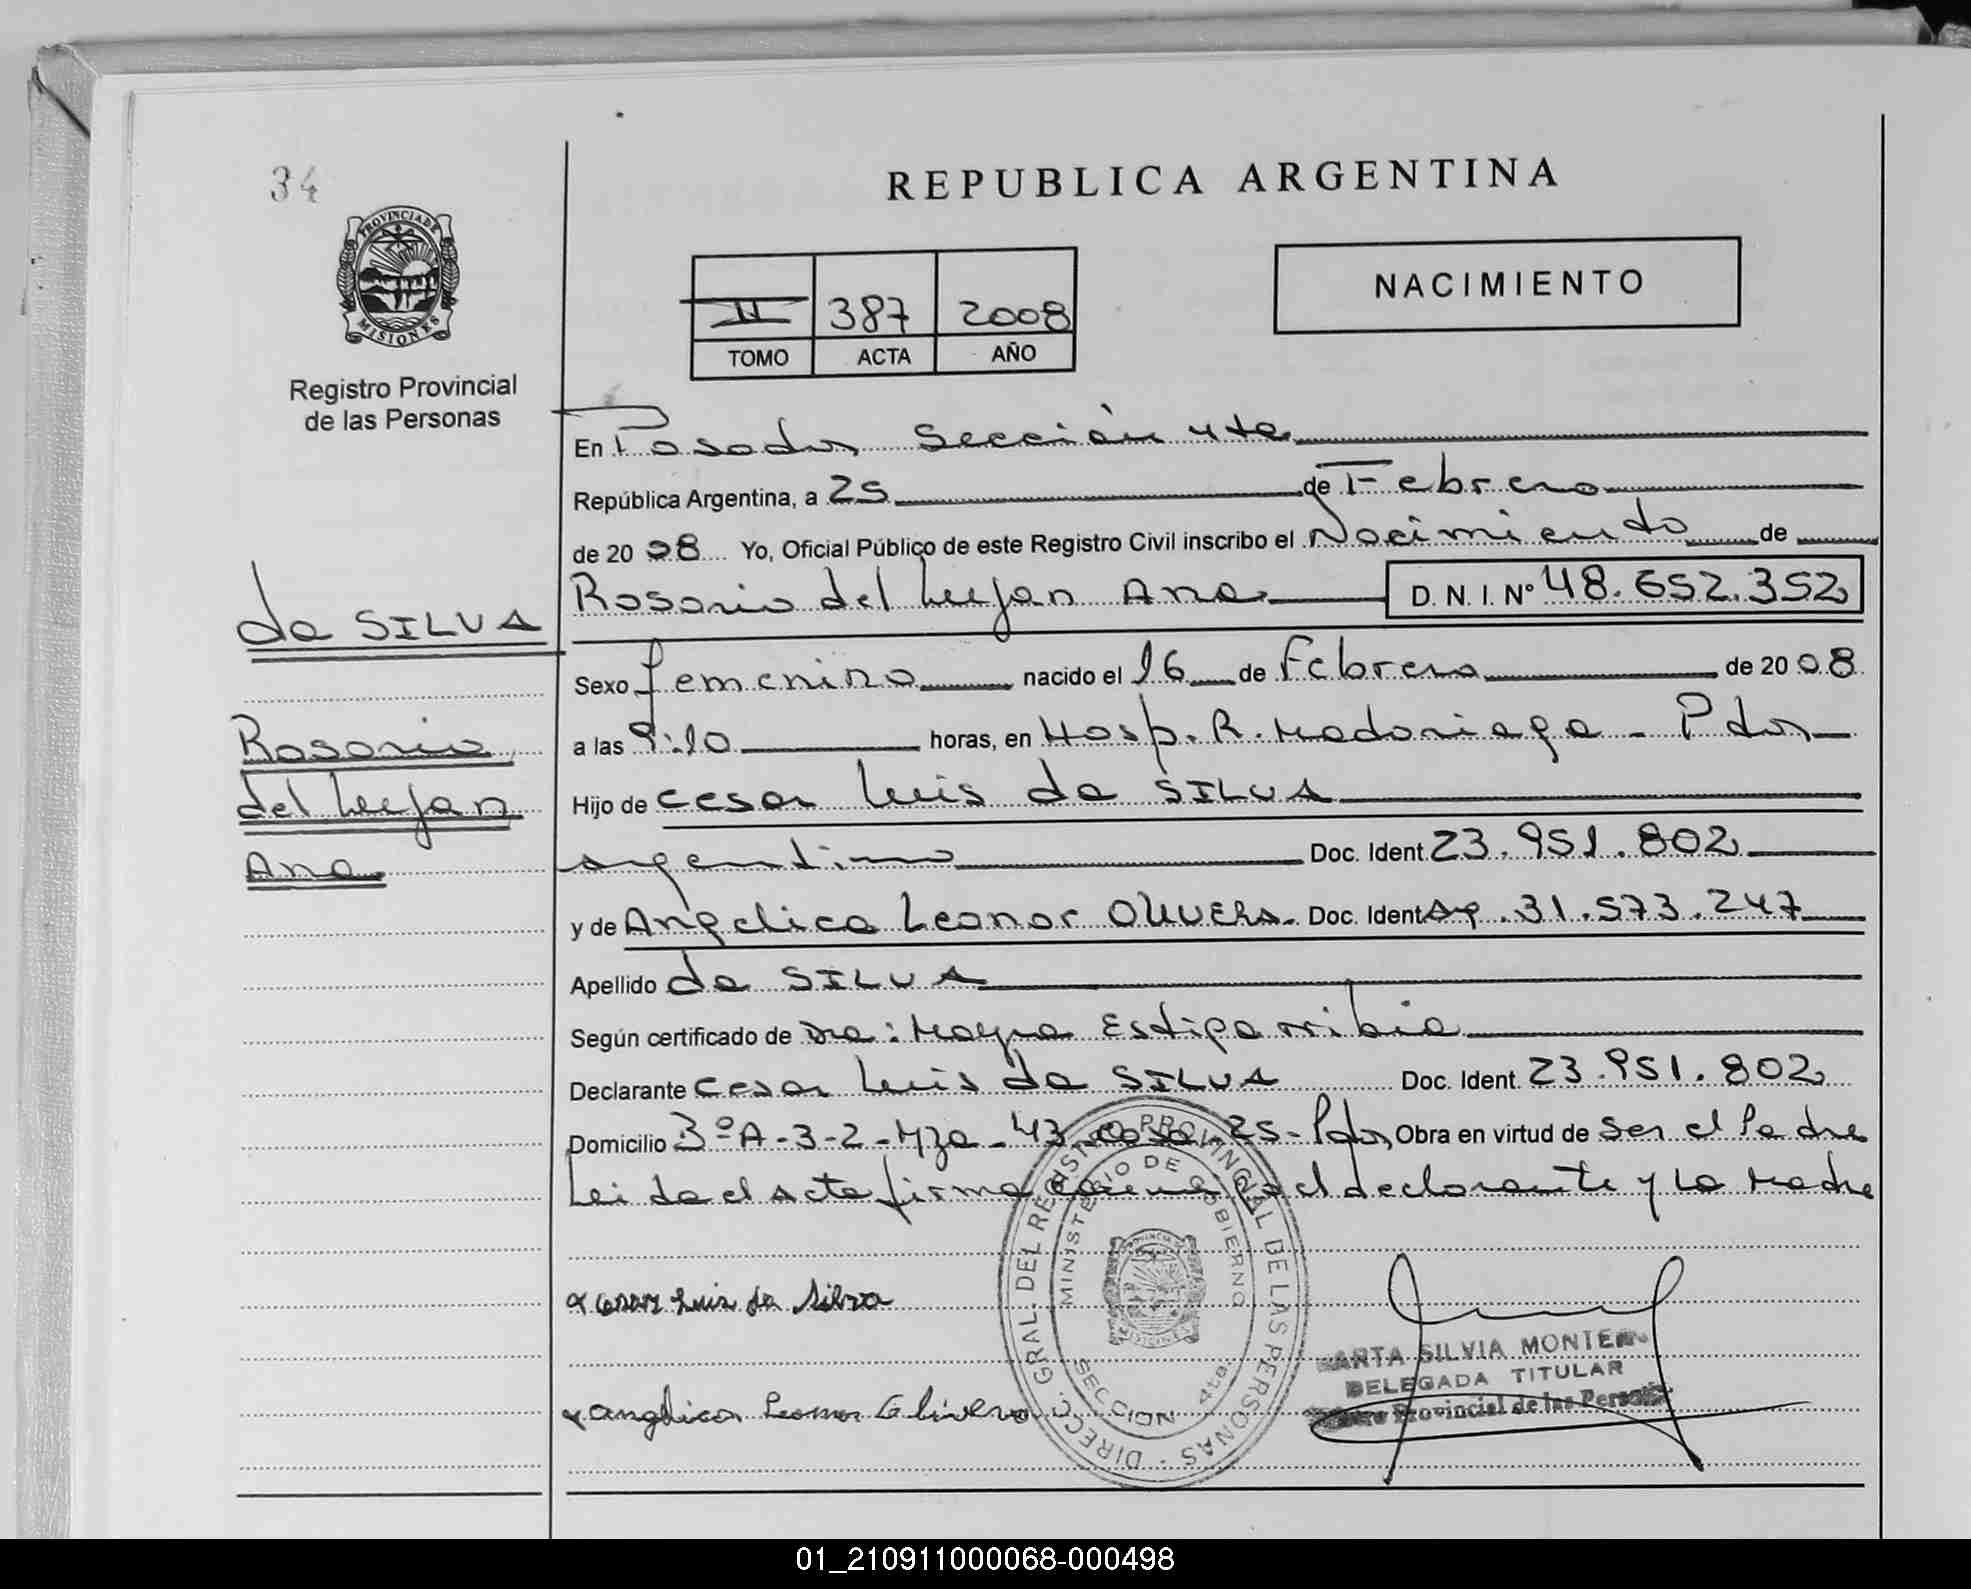 34
REPUBLICA ARGENTINA
PROVINCIA DE
MISIONES
Registro Provincial
de las Personas
II 387 2008
TOMO ACTA AÑO
NACIMIENTO
En Posadas Sección 4ta
República Argentina, a 25 de Febrero
de 2008 Yo, Oficial Público de este Registro Civil inscribo el Nacimiento de
da SILVA
Rosario del Lujan Ana D.N.I. Nº 48.652.352
Sexo femenino nacido el 16 de Febrero de 2008
Rosario
del Lujan
Ana
a las 9:10 horas, en Hosp. R. Madariaga - Pdas
Hijo de Cesar Luis da SILVA
argentino Doc. Ident. 23.951.802
y de Angelica Leonor OLIVERA Doc. Ident Ag. 31.573.247
Apellido da SILVA
Según certificado de Dra: Mayra Estigarribia
Declarante Cesar Luis da SILVA Doc. Ident. 23.951.802
Domicilio 3º A-3-2-Mza-43 casa 25-Pdas Obra en virtud de ser el Padre
Leida el acta firma el declarante y la Madre
Cesar Luis da Silva
Angelica Leonor Olivera
DIRECC. GRAL. DEL REGISTRO PROVINCIAL DE LAS PERSONAS
MINISTERIO DE GOBIERNO
PROVINCIA DE
MISIONES
SECCION 4ta.
MARTA SILVIA MONTERO
DELEGADA TITULAR
Provincial de las Personas
01_210911000068-000498